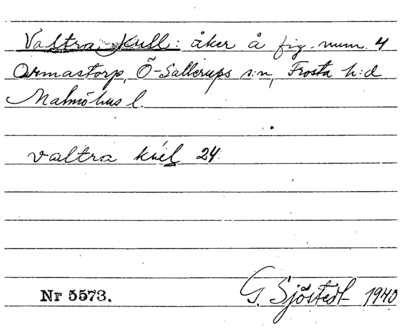 Valtra kull: åker å fig. num. 4
Ormastorp, Ö-Sallerups s:n, Frosta h:d
Malmöhus l.
valtra kúel 24
Nr 5573.
G. Sjöstedt 1940